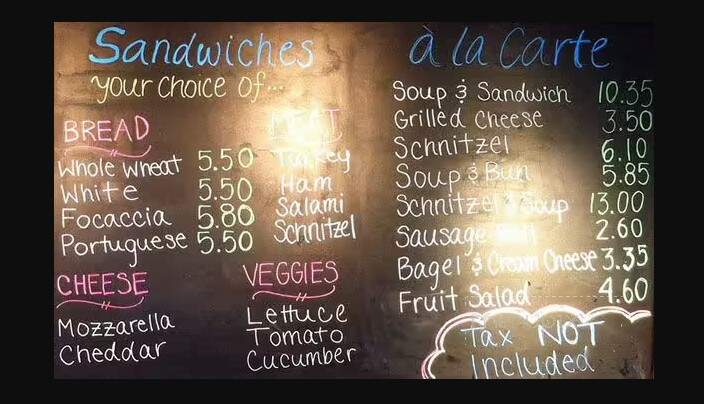 Sandwiches
your choice of...
BREAD
Whole Wheat 5.50
White 5.50
Focaccia 5.80
Portuguese 5.50
MEAT
Turkey
Ham
Salami
Schnitzel
CHEESE
Mozzarella
Cheddar
VEGGIES
Lettuce
Tomato
Cucumber
à la Carte
Soup & Sandwich 10.35
Grilled Cheese 3.50
Schnitzel 6.10
Soup & Bun 5.85
Schnitzel & Soup 13.00
Sausage 2.60
Bagel & Cream Cheese 3.35
Fruit Salad 4.60
Tax NOT
Included